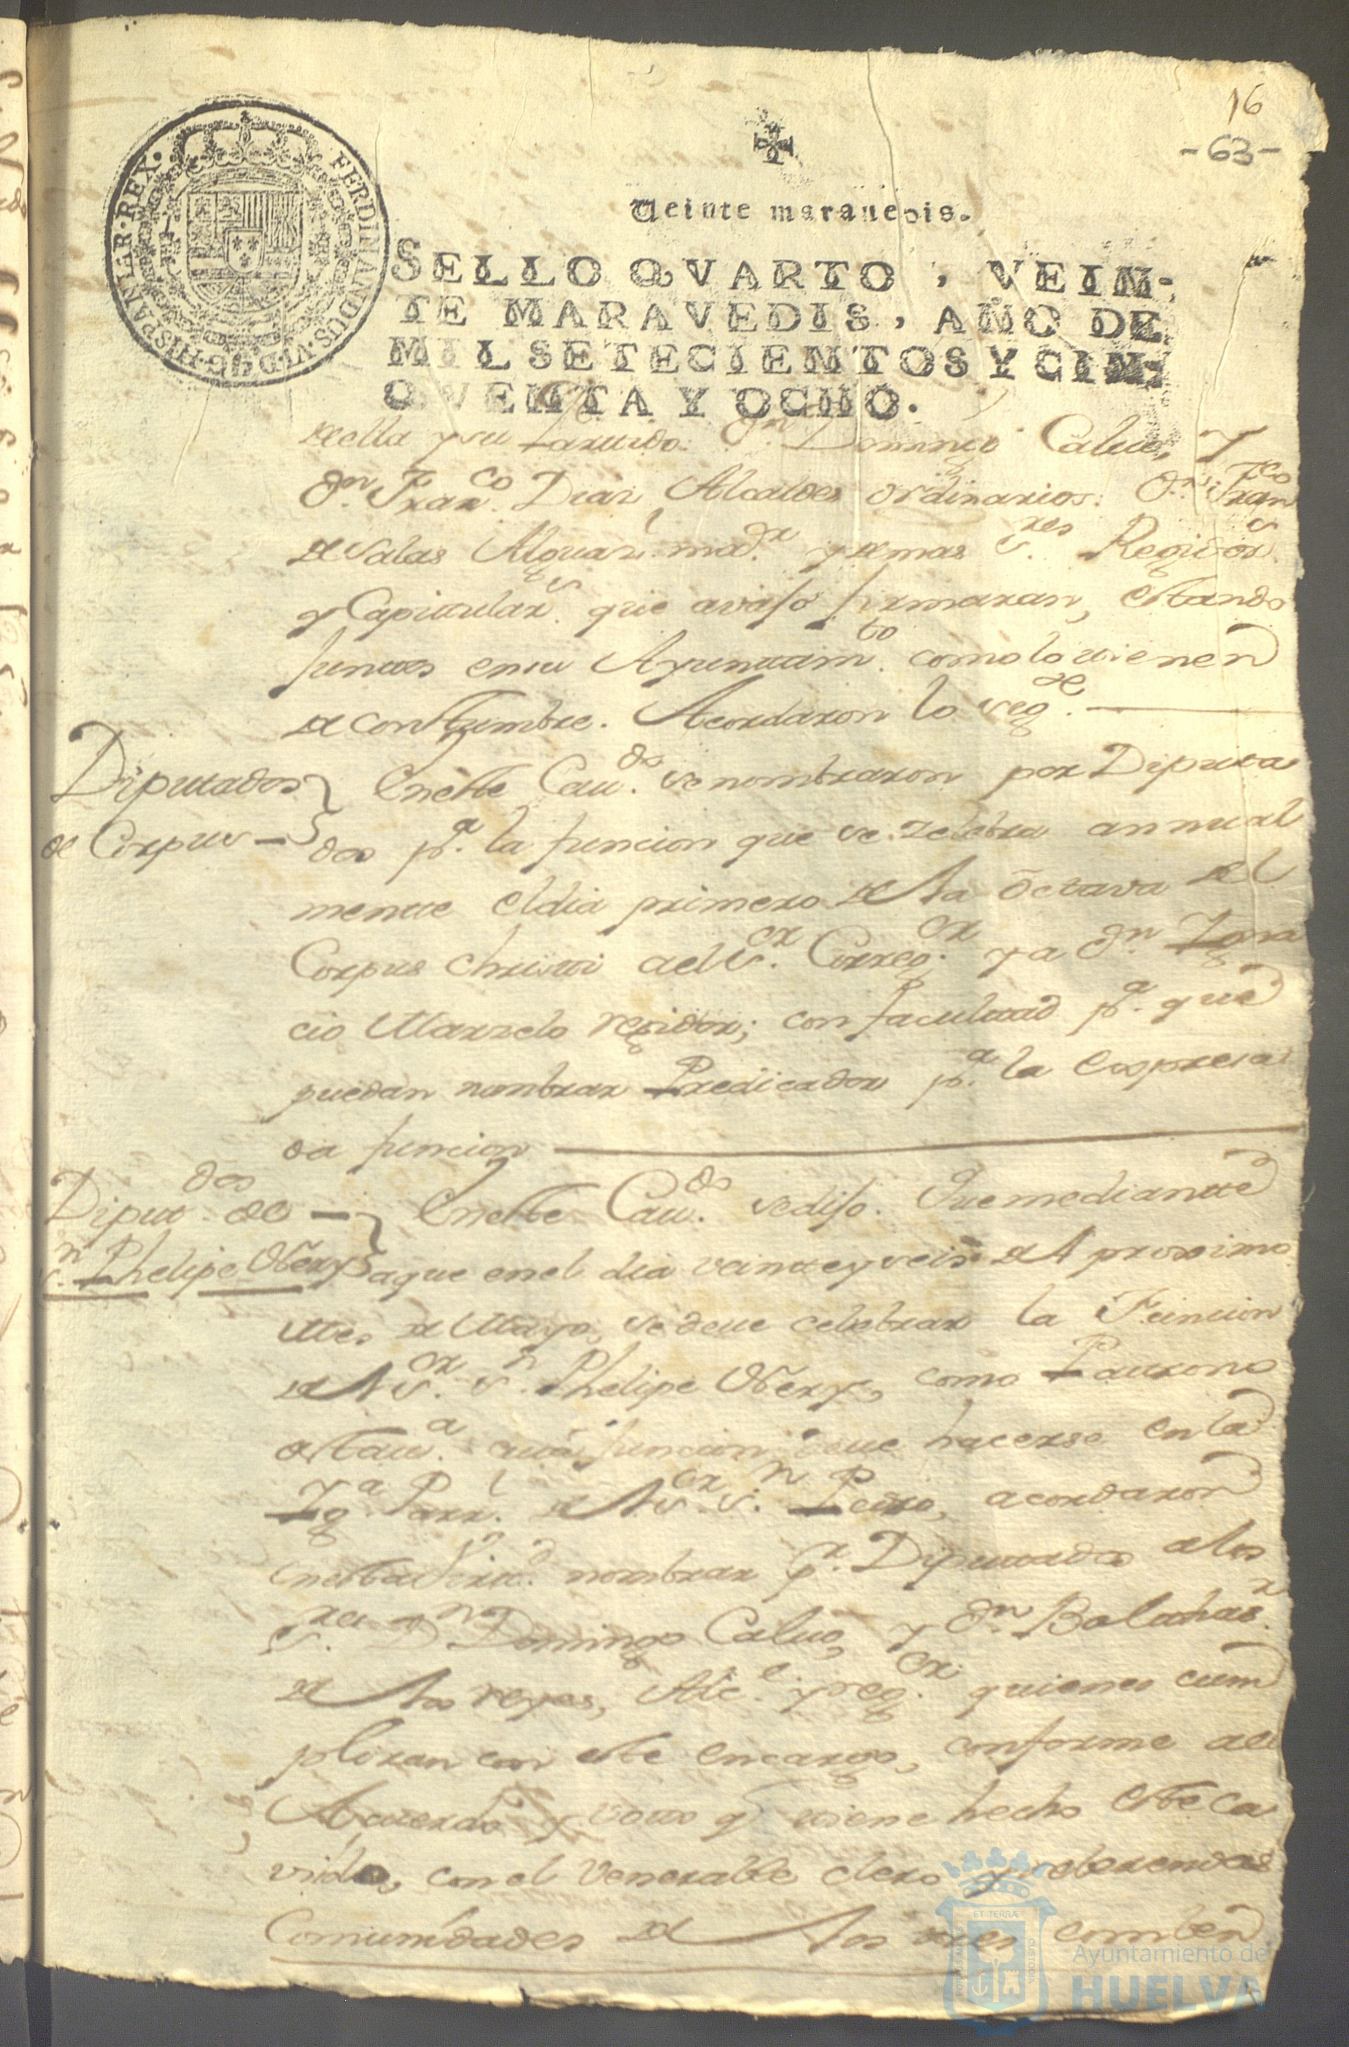 16
-63-
FERDINANDUS.VI.D.G.HISPANIAR.REX.
Veinte maravedis.
SELLO QVARTO, VEIN-
TE MARAVEDIS, AÑO DE
MIL SETECIENTOS Y CIN-
QVENTA Y OCHO.
de ella y su Partido. Dn. Domingo Calvo, Y
Dn. Franco. Diaz, Alcaldes ordinarios. Dn. Franco
de Salas Alguazl. mar. y demas Sres. Regidors
y Capitulars. que avaso firmaran, estando
juntos en su Ayuntamto. como lo tienen
de constumbre. Acordaron lo sege.
Diputados
de Corpus
En este Cavdo. se nombraron por Diputa
dos pa. la funcion que se zelebra annual
mente el dia primero de la Octava del
Corpus Christi al Sor. Corregor. y a Dn. Igna
cio Marzelo regidor; con facultad pa. que
puedan nombrar Predicador pa. la expresa
da funcion
Diputdos de
Sn. Phelipe Nery
En este Cavdo. se diso. Que mediante
a que en el dia veinte y seis del proximo
mes de Mayo, se deve celebrar la Funcion
del Sor. Sn. Phelipe Nery, como Patrono
de esta va. cuia funcion deve hacerse en la
Yga. Parrl. del Sor. Sn. Pedro, acordaron
en esta Virtd. nombrar pr. Diputados a los
Sres. Dn. Domingo Calvo, y Dn. Balthasr.
de los reyes, Alce. y regor. quienes cum
pliran con este encargo, conforme al
Acuerdo y voto q tiene hecho este ca
vildo, con el Venerable clero y reberendas
Comunidades de los tres comben
Ayuntamiento de
HUELVA